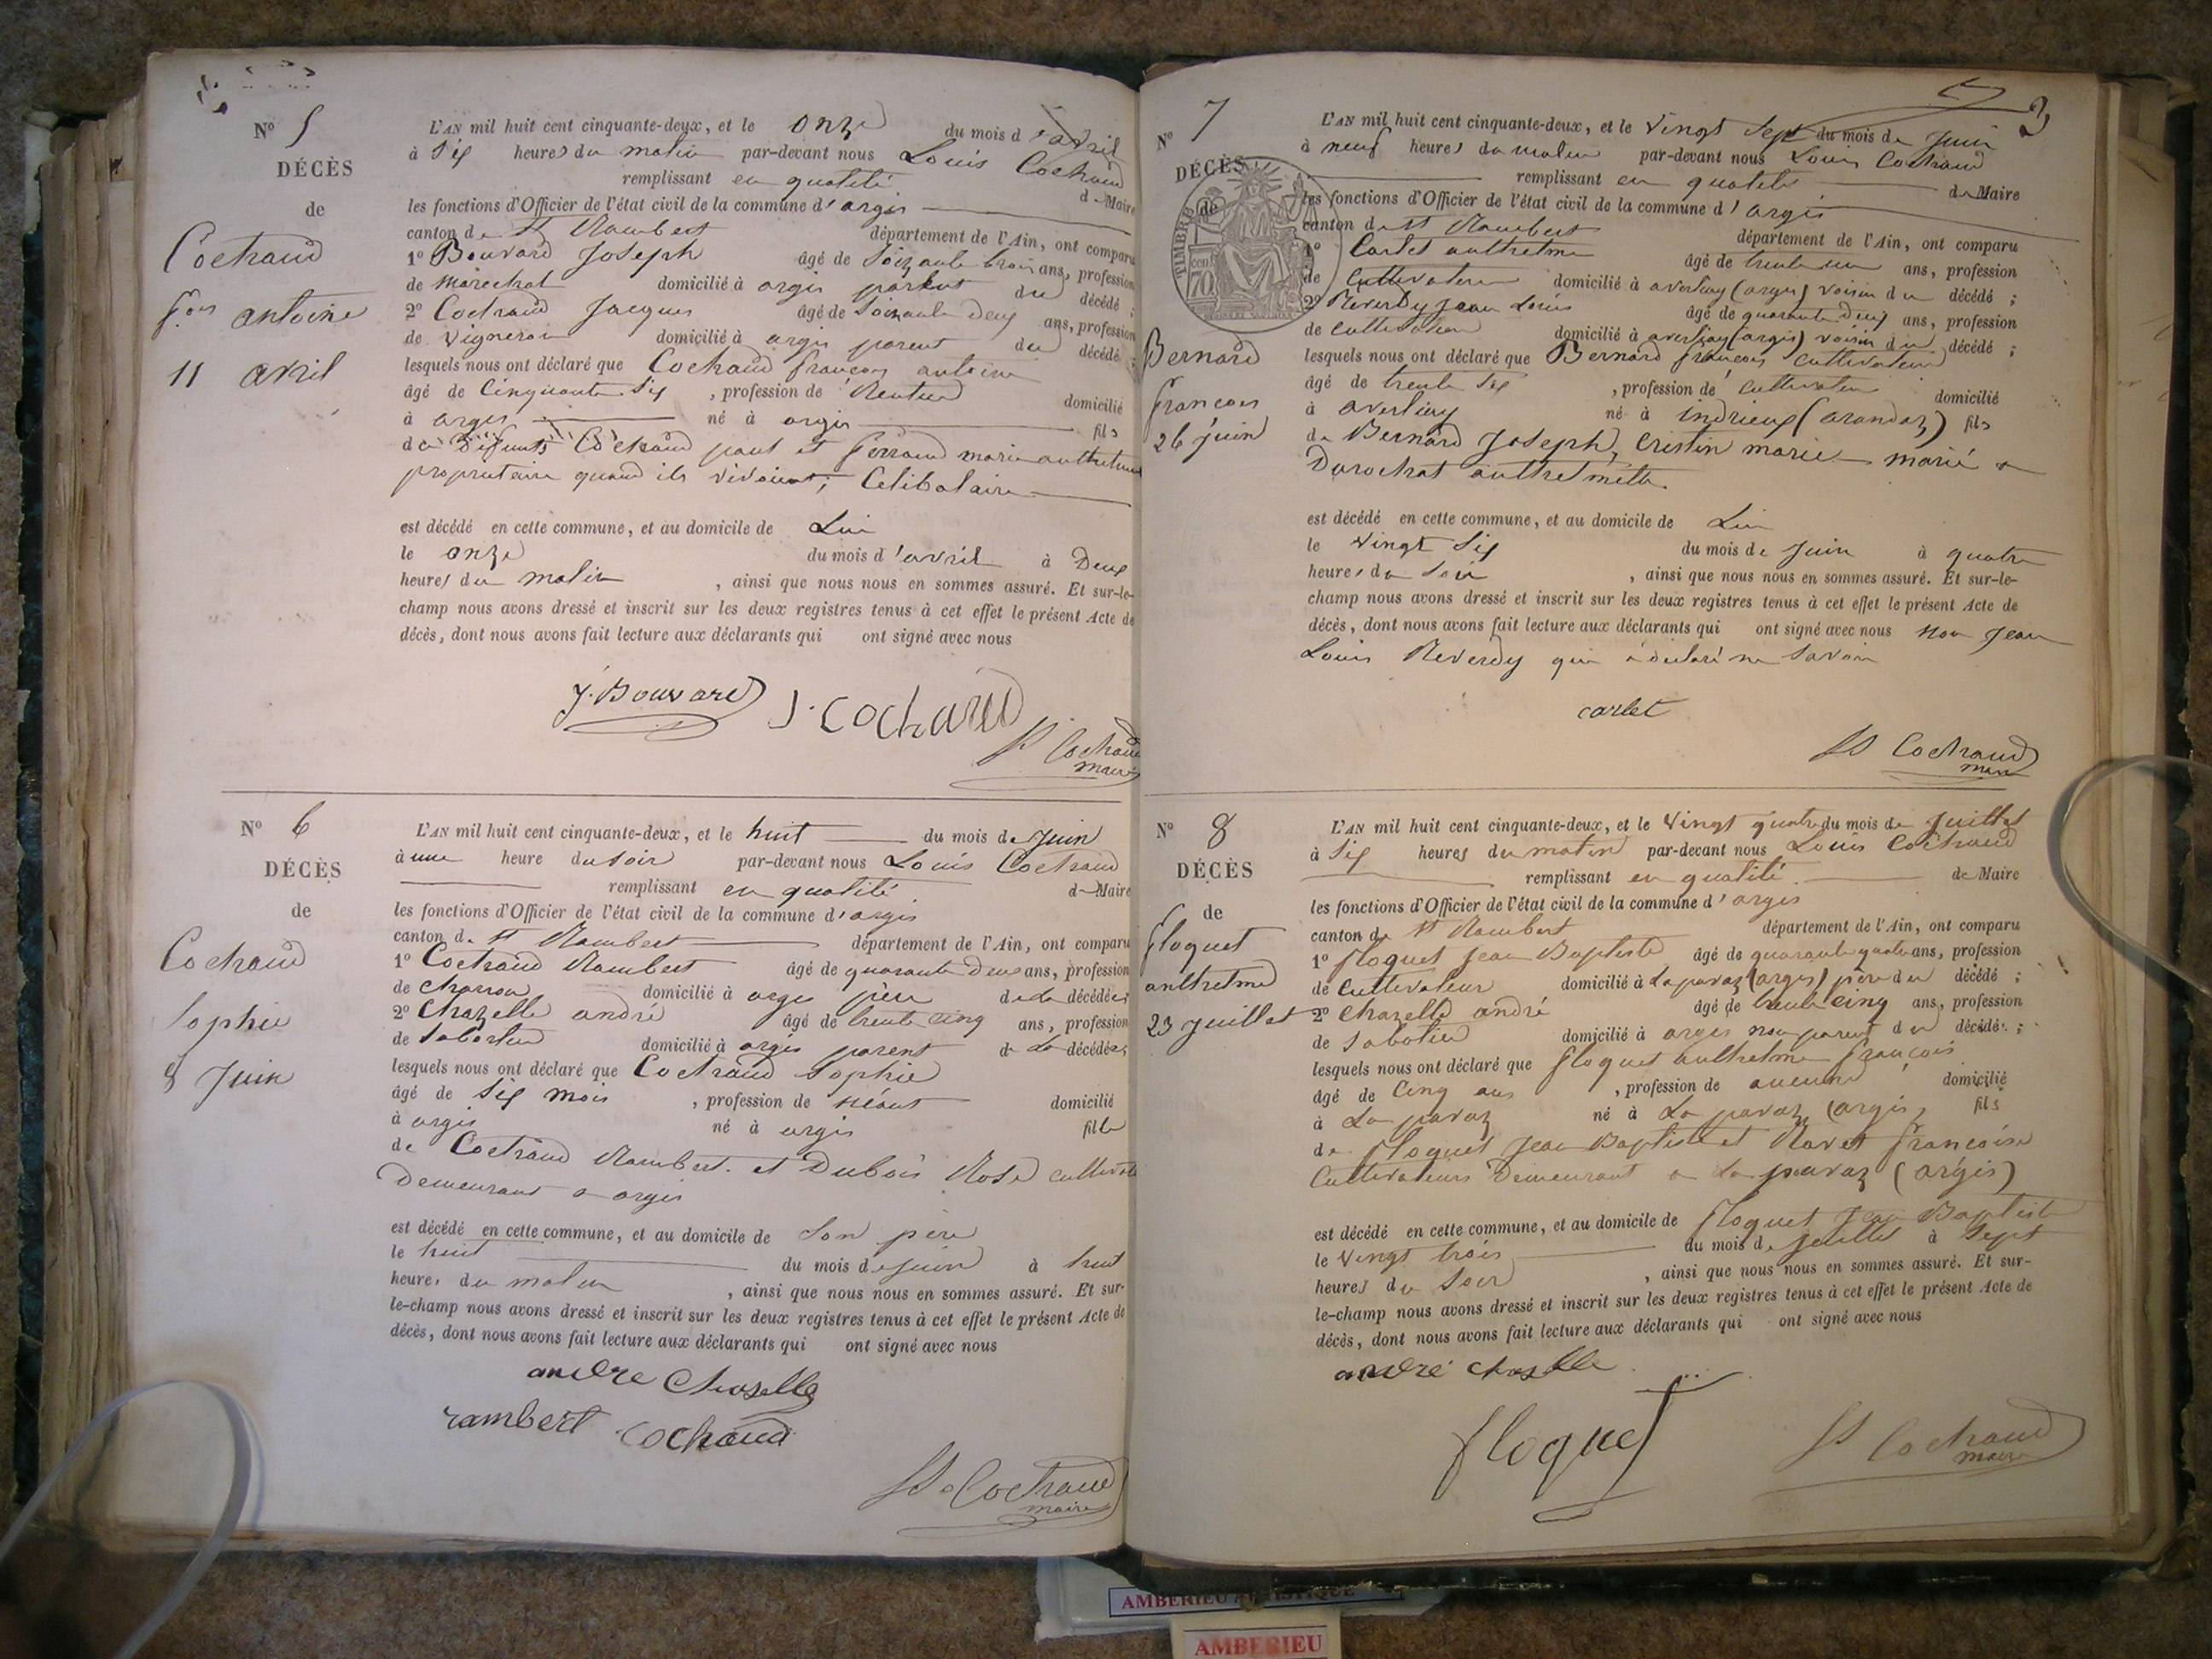 N° 5
DÉCÈS
de
Cochaud
f.çois antoine
11 avril
L'AN mil huit cent cinquante-deux, et le onze du mois d'avril
à Six heures du matin par-devant nous Louis Cochaud
remplissant en qualité de Maire
les fonctions d'Officier de l'état civil de la commune d'argis
canton de St Rambert département de l'Ain, ont comparu
1° Bouvard Joseph âgé de Soixante trois ans, profession
de Marechal domicilié à argis parent du décédé ;
2° Cochaud Jacques âgé de Soixante Deux ans, profession
de Vigneron domicilié à argis parent du décédé ;
lesquels nous ont déclaré que Cochaud françois antoine
âgé de Cinquante Six , profession de Rentier domicilié
à argis né à argis fils
de Défunts Cochaud paul et ferrand marie anthelmette
propriétaire quand ils vivaient, Celibataire
est décédé en cette commune, et au domicile de Lui
le onze du mois d'avril à Deux
heures du matin , ainsi que nous nous en sommes assuré. Et sur-le-
champ nous avons dressé et inscrit sur les deux registres tenus à cet effet le présent Acte de
décès, dont nous avons fait lecture aux déclarants qui ont signé avec nous
J. Bouvard J. Cochaud
Ls Cochaud
maire
N° 6
DÉCÈS
de
Cochaud
Sophie
8 Juin
L'AN mil huit cent cinquante-deux, et le huit du mois de Juin
à une heure du soir par-devant nous Louis Cochaud
remplissant en qualité de Maire
les fonctions d'Officier de l'état civil de la commune d'argis
canton de St Rambert département de l'Ain, ont comparu
1° Cochaud Rambert âgé de quarante Deux ans, profession
de charron domicilié à argis père de la décédée ;
2° Chazelle andré âgé de trente cinq ans, profession
de Sabotier domicilié à argis parent de La décédée ;
lesquels nous ont déclaré que Cochaud Sophie
âgé de Six mois , profession de Néant domicilié
à argis né à argis fille
de Cochaud Rambert et Dubois Rose
Demeurant a argis
est décédé en cette commune, et au domicile de Son père
le huit du mois de Juin à huit
heures du matin , ainsi que nous nous en sommes assuré. Et sur-
le-champ nous avons dressé et inscrit sur les deux registres tenus à cet effet le présent Acte de
décès, dont nous avons fait lecture aux déclarants qui ont signé avec nous
andre Chazelle
rambert cochaud
Ls Cochaud
maire
3
N° 7
DÉCÈS
de
Bernard
françois
26 juin
TIMBRE
70
L'AN mil huit cent cinquante-deux, et le Vingt Sept du mois de Juin
à neuf heures du matin par-devant nous Louis Cochaud
remplissant en qualité de Maire
les fonctions d'Officier de l'état civil de la commune d'argis
canton de St Rambert département de l'Ain, ont comparu
1° Carlet anthelme âgé de trente un ans, profession
de Cultivateur domicilié à averliay (argis) voisin du décédé ;
2° Reverdy Jean Louis âgé de quarante Deux ans, profession
de Cultivateur domicilié à averliay (argis) voisin du décédé ;
lesquels nous ont déclaré que Bernard françois Cultivateur
âgé de trente Six , profession de Cultivateur domicilié
à averliay né à indrieux (arandaz) fils
de Bernard Joseph, Cristin marie marié a
Durochat anthelmette
est décédé en cette commune, et au domicile de Lui
le Vingt Six du mois de Juin à quatre
heures du Soir , ainsi que nous nous en sommes assuré. Et sur-le-
champ nous avons dressé et inscrit sur les deux registres tenus à cet effet le présent Acte de
décès, dont nous avons fait lecture aux déclarants qui ont signé avec nous non Jean
Louis Reverdy qui a déclaré ne Savoir
carlet
Ls Cochaud
maire
N° 8
DÉCÈS
de
floquet
anthelme
23 Juillet
L'AN mil huit cent cinquante-deux, et le Vingt quatre du mois de Juillet
à Six heures du matin par-devant nous Louis Cochaud
remplissant en qualité de Maire
les fonctions d'Officier de l'état civil de la commune d'argis
canton de St Rambert département de l'Ain, ont comparu
1° floquet Jean Baptiste âgé de quarante quatre ans, profession
de Cultivateur domicilié à Laparaz (argis) père du décédé ;
2° Chazelle andré âgé de trente cinq ans, profession
de Sabotier domicilié à argis non parent du décédé ;
lesquels nous ont déclaré que floquet anthelme françois
âgé de Cinq ans , profession de aucune domicilié
à La paraz né à La paraz (argis) fils
de floquet Jean Baptiste et Ravet françoise
Cultivateurs Demeurant a La paraz (argis)
est décédé en cette commune, et au domicile de floquet Jean Baptiste
le Vingt trois du mois de Juillet à Sept
heures du Soir , ainsi que nous nous en sommes assuré. Et sur-
le-champ nous avons dressé et inscrit sur les deux registres tenus à cet effet le présent Acte de
décès, dont nous avons fait lecture aux déclarants qui ont signé avec nous
andré chazelle
floquet
Ls Cochaud
maire
AMBERIEU ARTISTIQUE
AMBERIEU